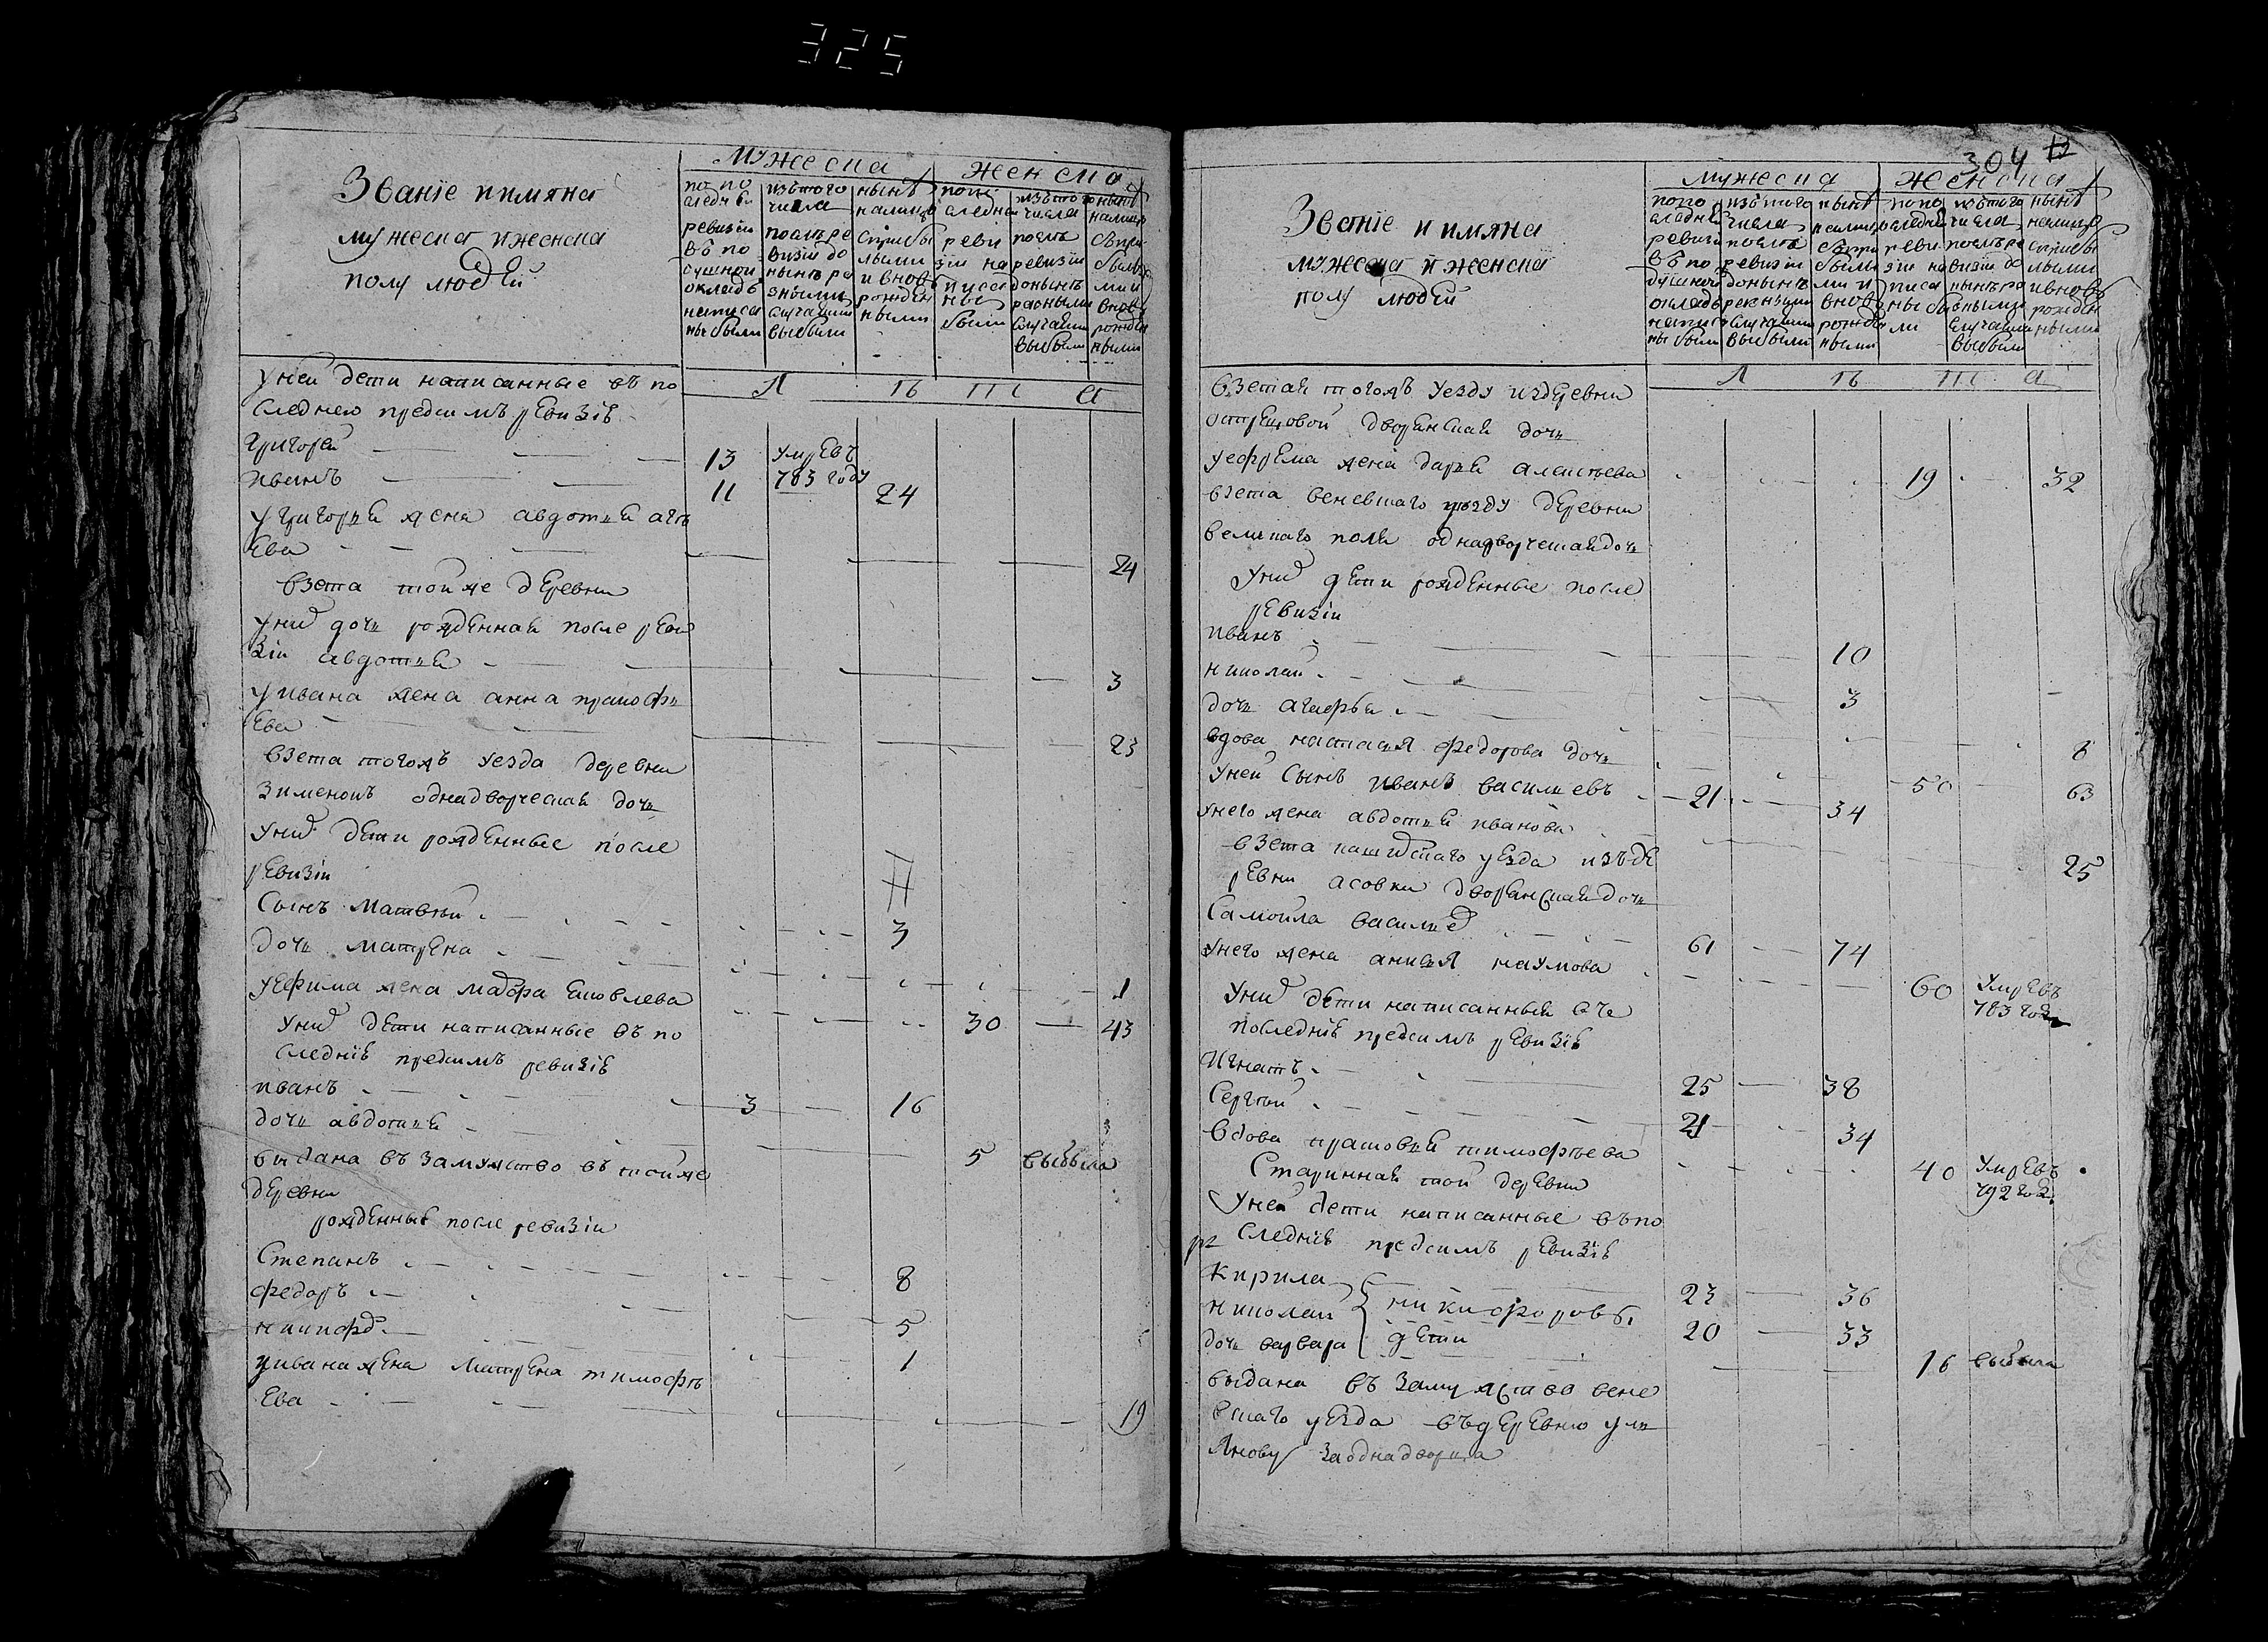 325
Званїе иимяна
мужеска иженска
полу людей
Мужеска женска
по по
следн ей
ревизїи
въ по
душном
окладе
написа
ны были
изътого
числа
послъ ре
визїи до
нынъ ра
зными
случаями
выбыли
нынъ
налицо
сприбы
лыми
и вновь
рожден
ными
попо
следней
реви
зїи на
писа
ны
были
изътого
числа
послъ
ревизїи
донынъ
разными
случаями
выбыли
нынъ
налицо
съпри
былы
ми и
вновь
рожден
ными
Л ть т а
унеи дети написанные въ по
следнею предсимъ ревизїе
григорей 13 умревъ
783 году
иванъ 11 24
у григорья жена авдотья агъ
ева 24
взета тойже деревни
уних дочь рожденная после реви
зїи авдотья 3
уивана жена анна пракофь
ева 23
взета тогожъ уезда деревни
зименокъ однадворческая дочь
уних дети рожденные после
ревизїи
Сынъ матвеи 3
дочь матрена 1
уефима жена мавра яковлева 30 43
уних дети написанные въ по
следнїе предсимъ ревизїе
иванъ 3 16
дочь авдотья 5 выбыла
выдана въ замужство въ тойже
деревни
рожденные после ревизїи
Степанъ 8
федоръ 5
никифор 1
уивана жена матрена тимофъ
ева 19
304
Званїе и имяна
мужеска и женска
полу людей
мужеска женска
попо
следней
ревизїи
въ по
душном
окладе
написа
ны были
изътого
числа
послъ
ревизїи
донынъ
разными
случаями
выбыли
нынъ
налицо
съпри
былы
ми и
вновь
рожден
ными
по по
следней
реви
зїи на
писа
ны бы
ли
изътого
числа
послъ ре
визїи до
нынъ ра
зными
случаями
выбыли
нынъ
налицо
сприбы
лыми
ивновь
рожден
ными
Л ть т а
взетая тогожъ уезду издеревни
острецовой дворянская дочь
уефрема жена дарья алексъева 19 32
взета веневшаго уъзду деревни
великаго поля однадворческая дочь
уних дети рожденные после
ревизїи
иванъ 10
николай 3
дочь агафья 8
вдова настасья федорова дочь 50 63
унеи сынъ иванъ василиевъ 21 34
унего жена авдотья иванова 25
взета каширскаго уезда изъде
ревни асовки дворянская дочь
Самойла василье 61 74
унего жена анисья наумова 60 умревъ
783 годе
уних дети написанныя въ
последнїе предсимъ ревизїе
Игнатъ 25 38
Сергъй 21 34
вдова прасковья тимофъева 40 умревъ
792 годе
Старинная той деревни
Унеи дети написанные въпо
следнїе предсимъ ревизїе
Кирила 23 36
николай никифоровы 20 33
дочь варвара дети 16 выбыла
выдана въ замужство вене
вшаго уезда въдеревню уль
янову заоднадворца